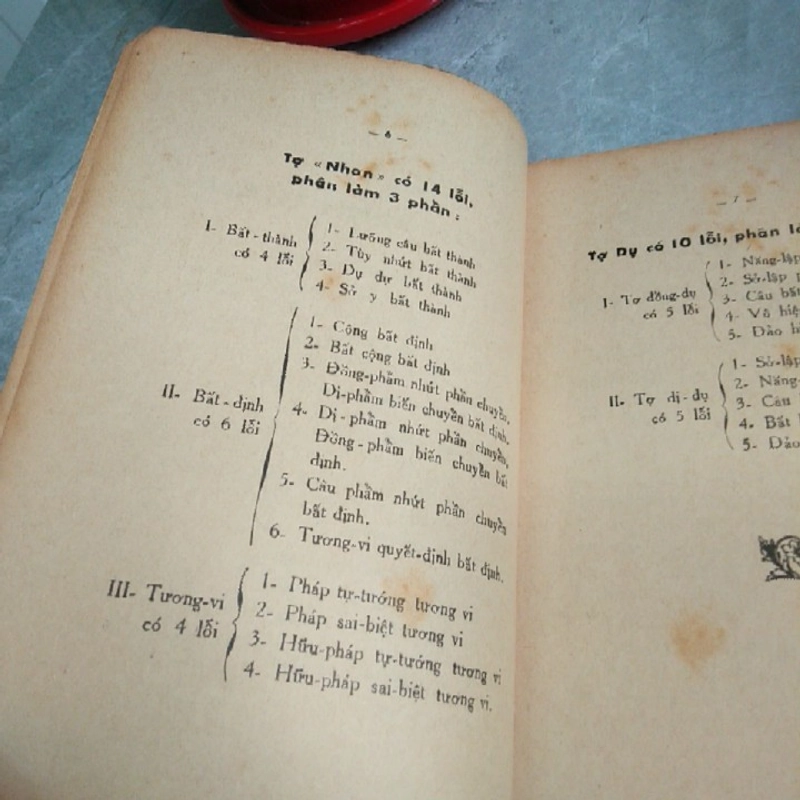 — 6 —
Tợ «Nhan» có 14 lỗi,
phân làm 3 phần :
I- Bất-thành
có 4 lỗi
1- Lưỡng câu bất thành
2- Tùy nhứt bất thành
3- Dụ dự bất thành
4- Sở y bất thành
II- Bất-định
có 6 lỗi
1- Cộng bất định
2- Bất cộng bất định
3- Đồng-phẩm nhứt phần chuyển,
Dị-phẩm biến chuyển bất định.
4- Dị-phẩm nhứt phần chuyển,
Đồng-phẩm biến chuyển bất
định.
5- Câu phẩm nhứt phần chuyển
bất định.
6- Tương-vi quyết-định bất định.
III- Tương-vi
có 4 lỗi
1- Pháp tự-tướng tương vi
2- Pháp sai-biệt tương vi
3- Hữu-pháp tự-tướng tương vi
4- Hữu-pháp sai-biệt tương vi.
— 7 —
Tợ Dụ có 10 lỗi, phân
I- Tợ đồng-dụ
có 5 lỗi
1- Năng-lập
2- Sở-lập
3- Câu bất
4- Vô
5- Đảo
II- Tợ dị-dụ
có 5 lỗi
1- Sở-lập
2- Năng-
3- Câu
4- Bất
5- Đảo